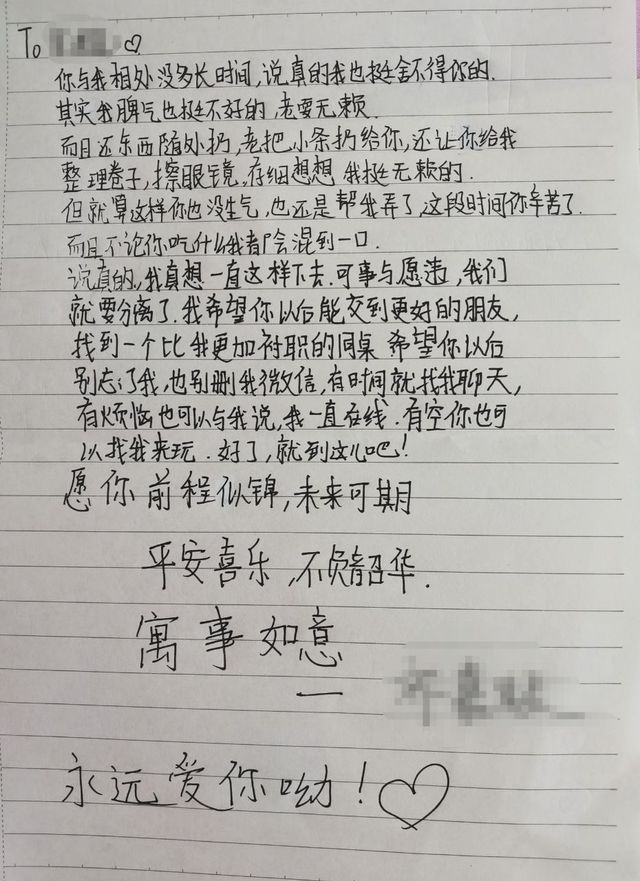 To
你与我相处没多长时间,说真的我也挺舍不得你的.
其实我脾气也挺不好的,老耍无赖.
而且还东西随处扔,老把小条扔给你,还让你给我
整理卷子,擦眼镜,存细想想 我挺无赖的.
但就算这样你也没生气,也还是帮我弄了,这段时间你辛苦了.
而且不论你吃什么我都会混到一口.
说真的,我真想一直这样下去.可事与愿违,我们
就要分离了.我希望你以后能交到更好的朋友,
找到一个比我更加称职的同桌 希望你以后
别忘了我,也别删我微信,有时间就找我聊天,
有烦恼也可以与我说,我一直在线.有空你也可
以找我来玩.好了,就到这儿吧!
愿你前程似锦,未来可期
平安喜乐,不负韶华.
寓事如意
一
永远爱你呦!